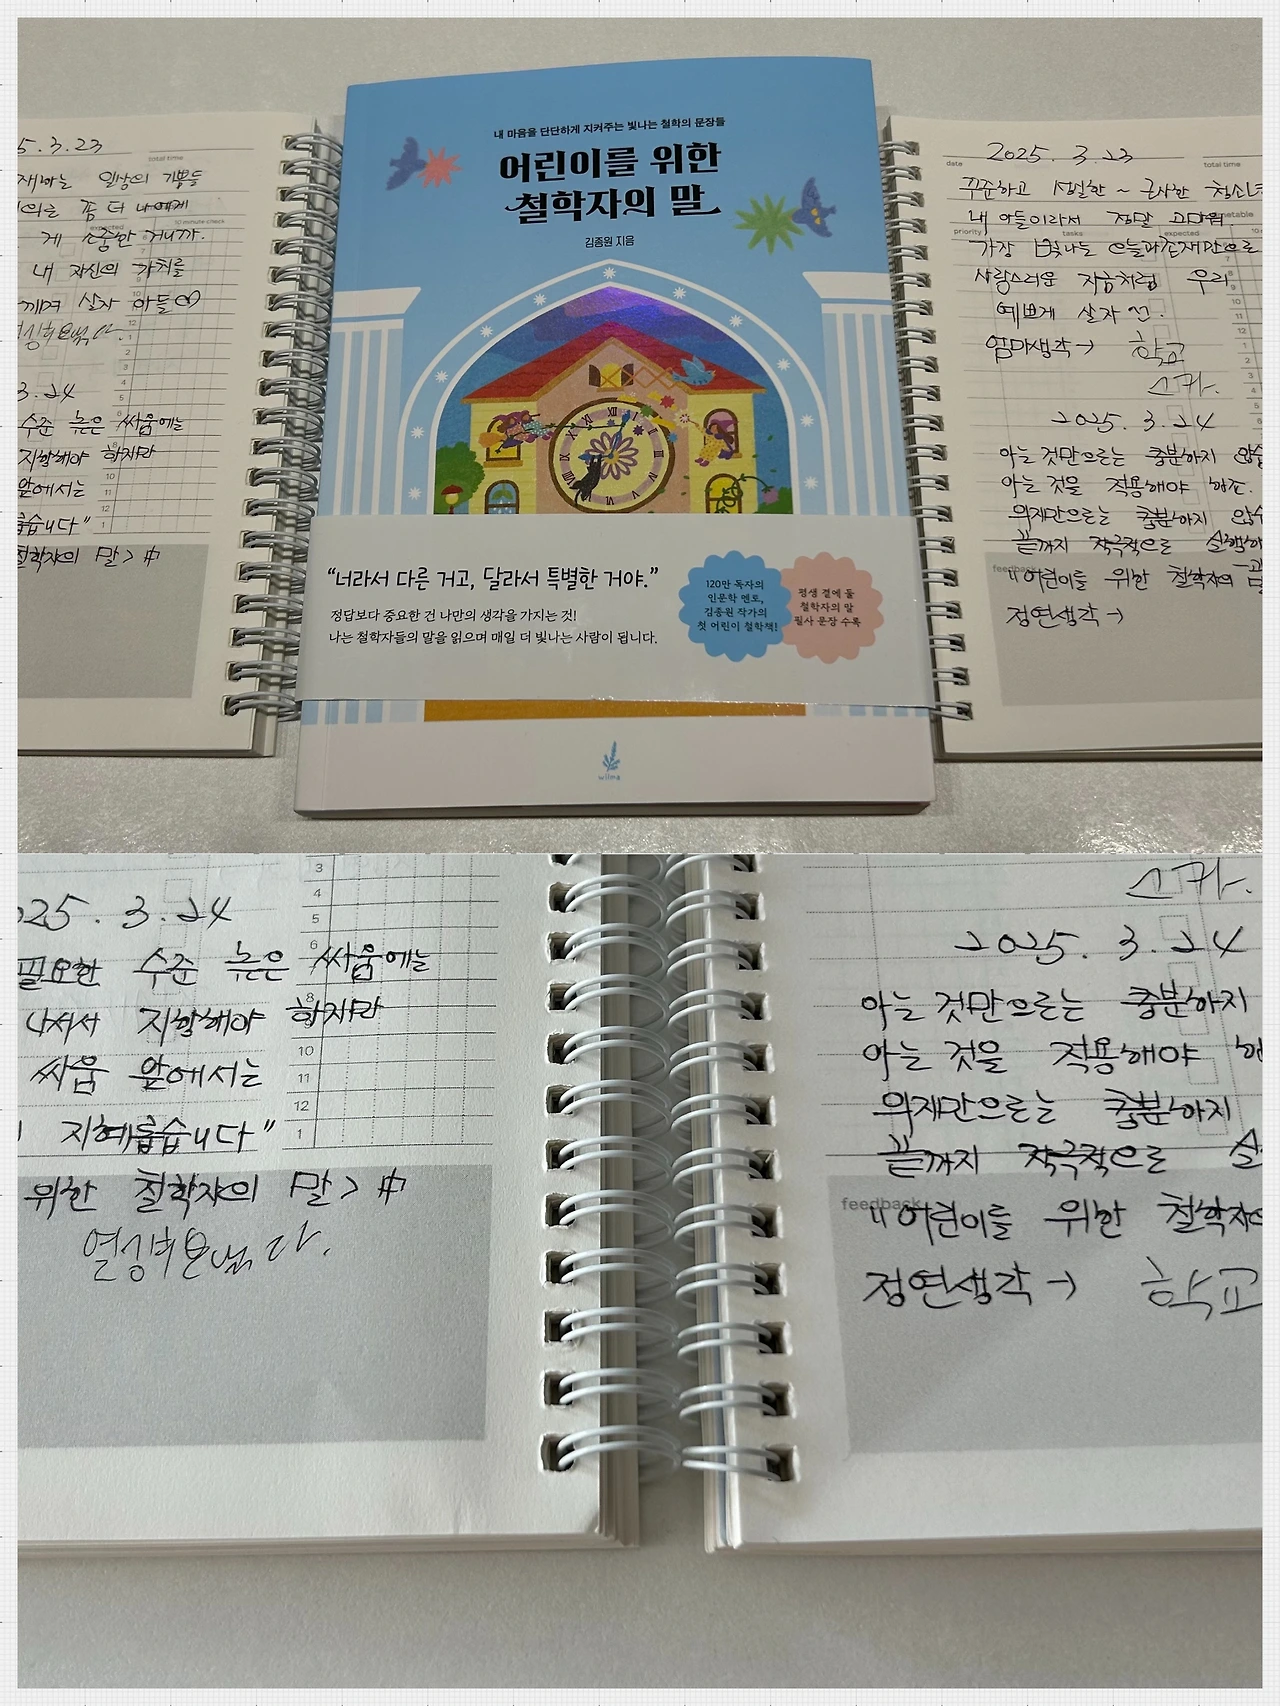 5.3.23
total time
일상의 기쁨들
좀 더 나에게
게 소중한 거니까.
내 자신의 가치를
깨며 살자 아들♡
3.24
수준 높은 싸움에는
지향해야 하지만
앞에서는
롭습니다"
철학자의 말> 中
내 마음을 단단하게 지켜주는 빛나는 철학의 문장들
어린이를 위한
철학자의 말
김종원 지음
"너라서 다른 거고, 달라서 특별한 거야."
정답보다 중요한 건 나만의 생각을 가지는 것!
나는 철학자들의 말을 읽으며 매일 더 빛나는 사람이 됩니다.
120만 독자의
인문학 멘토,
김종원 작가의
첫 어린이 철학책!
평생 곁에 둘
철학자의 말
필사 문장 수록
wilma
date
2025. 3. 23
total time
꾸준하고 성실한 ~ 근사한 청소년
내 아들이라서 정말 고마워
priority
tasks
expected
가장 빛나는 오늘과 존재만으로
사랑스러운 지금처럼 우리
예쁘게 살자
엄마생각→ 학교
스카.
2025. 3. 24
아는 것만으로는 충분하지 않습
아는 것을 적용해야 하죠.
의지만으로는 충분하지 않습
끝까지 적극적으로 실행하
feedback
"어린이를 위한 철학자의
정연생각→
025. 3. 24
필요한 수준 높은 싸움에는
나서서 지향해야 하지만
싸움 앞에서는
지혜롭습니다"
위한 철학자의 말> 中
스카.
2025. 3. 24
아는 것만으로는 충분하지
아는 것을 적용해야
의지만으로는 충분하지
끝까지 적극적으로
feedback
"어린이를 위한 철학자
정연생각→ 학교